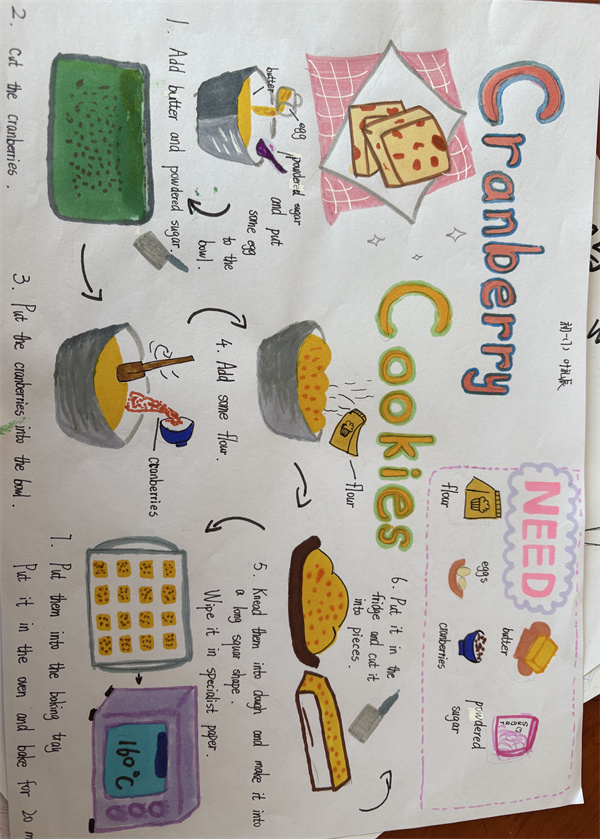 Cranberry
Cookies
NEED
flour
eggs
butter
cranberries
powdered
sugar
Sugar
1. Add butter and powdered sugar.
and put
some egg
to the
bowl.
butter
egg
powdered sugar
2. Cut the cranberries.
3. Put the cranberries into the bowl.
cranberries
4. Add some flour.
flour
5. Knead them into dough and make it into
a long squar shape.
Wipe it in specialist paper.
6. Put it in the
fridge and cut it
into pieces.
7. Put them into the baking tray
Put it in the oven and bake for 20 m
160°C